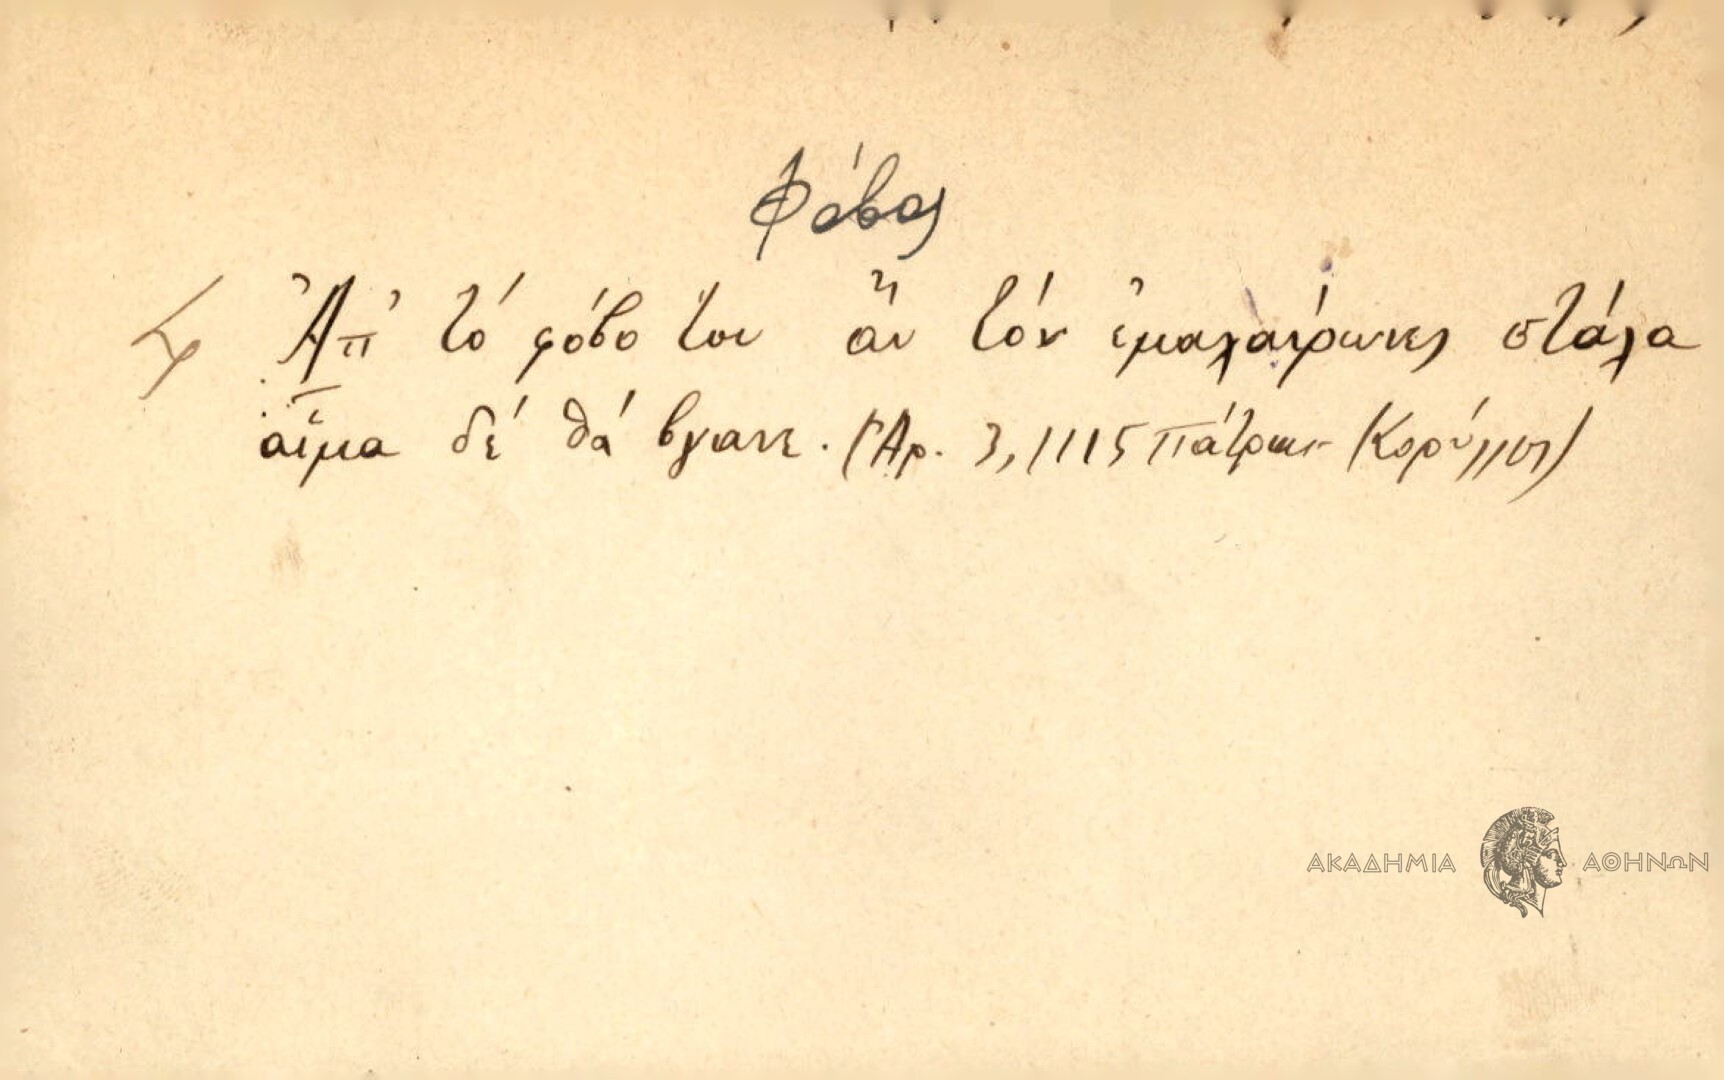 Φόβος
Ἀπ' τό φόβο του ἄν τόν ἐμαχαίρωνες στάλα
αἷμα δέ θά βγανε. (Ἀρ. 3, 1115 Πάτραι - Κορύλλος)
ΑΚΑΔΗΜΙΑ ΑΘΗΝΩΝ